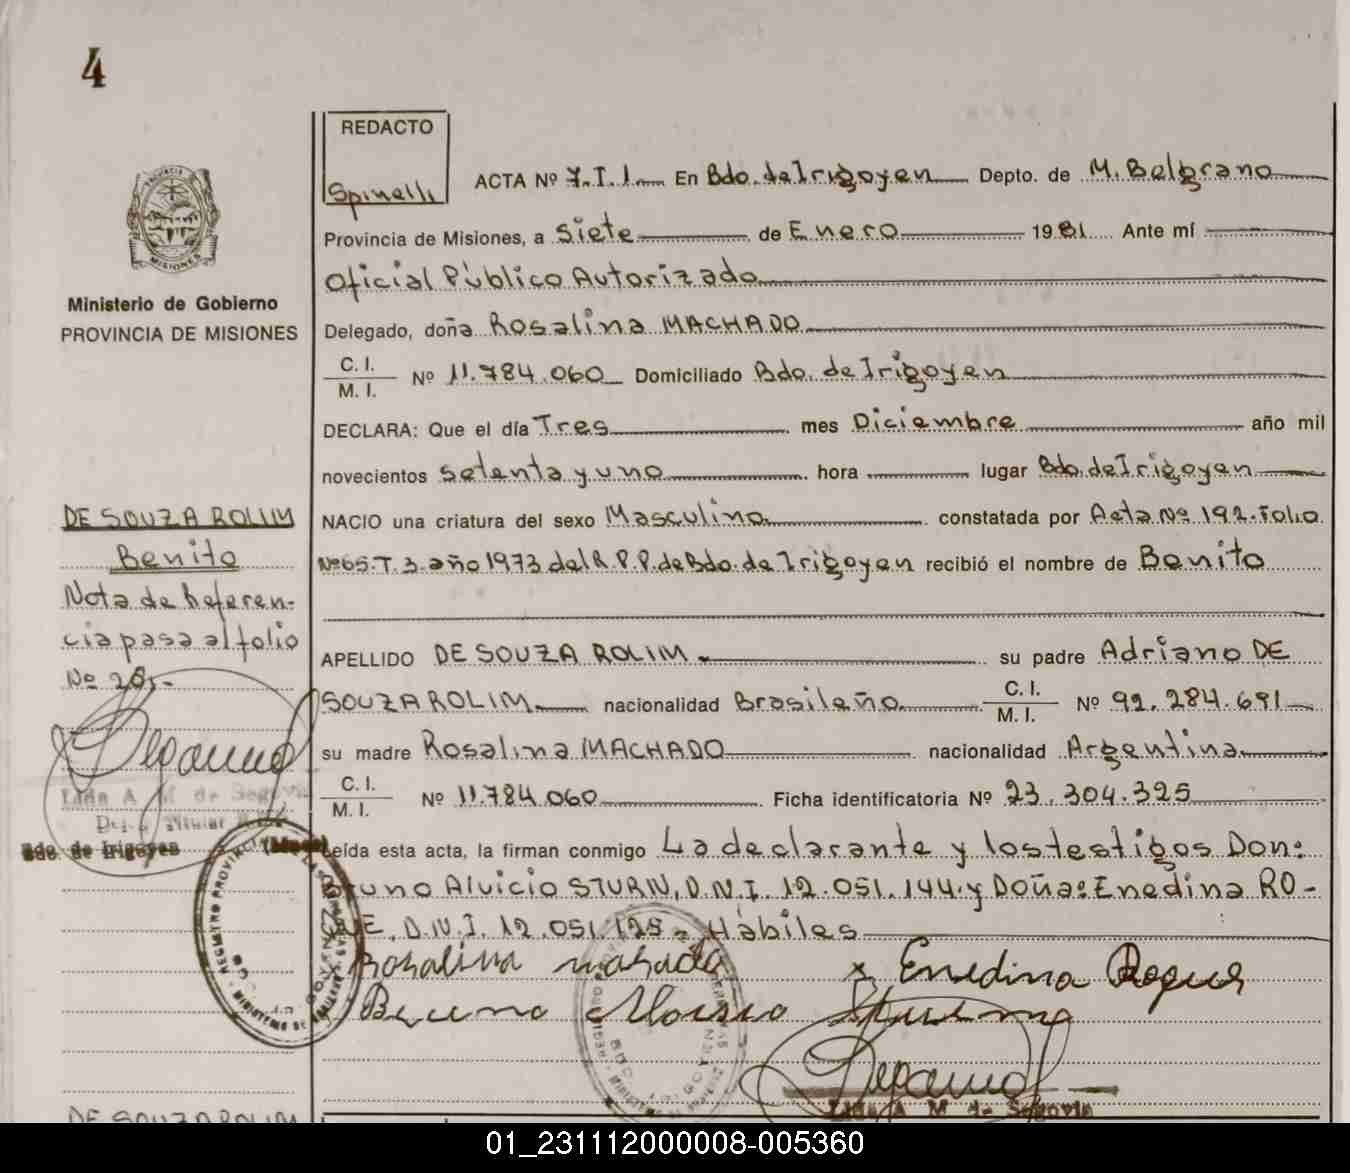 4
REDACTO
Spinelli
ACTA Nº 7.T.1. En Bdo. de Irigoyen Depto. de M. Belgrano
Provincia de Misiones, a Siete de Enero 1981 Ante mí
Oficial Público Autorizado
Delegado, doña Rosalina MACHADO
C. I.
M. I.
Nº 11.784.060 Domiciliado Bdo. de Irigoyen
DECLARA: Que el día Tres mes Diciembre año mil
novecientos setenta y uno hora lugar Bdo. de Irigoyen
NACIO una criatura del sexo Masculino constatada por Acta Nº 192. Folio
Nº 65. T. 3. año 1973 del R. P. P. de Bdo. de Irigoyen recibió el nombre de Benito
APELLIDO DE SOUZA ROLIM su padre Adriano DE
SOUZA ROLIM nacionalidad Brasileño C. I.
M. I. Nº 92.284.691
su madre Rosalina MACHADO nacionalidad Argentina
C. I.
M. I.
Nº 11.784.060 Ficha identificatoria Nº 23.304.325
Leída esta acta, la firman conmigo La declarante y los testigos Don:
Bruno Alvicio STURN, D.N.I. 12.051.144. y Doña: Enedina RO-
QUE, D.N.I. 12.051.125 - Hábiles
Rosalina masado
x Enedina Roque
Bruno
Lida A. M. de Segovia
PROVINCIA
MISIONES
Ministerio de Gobierno
PROVINCIA DE MISIONES
DE SOUZA ROLIM
Benito
Nota de Referen-
cia pasa al folio
Nº 28.-
Lida A. M. de Segovia
Titular
Bdo. de Irigoyen (Mnes)
DE SOUZA ROLIM
01_231112000008-005360